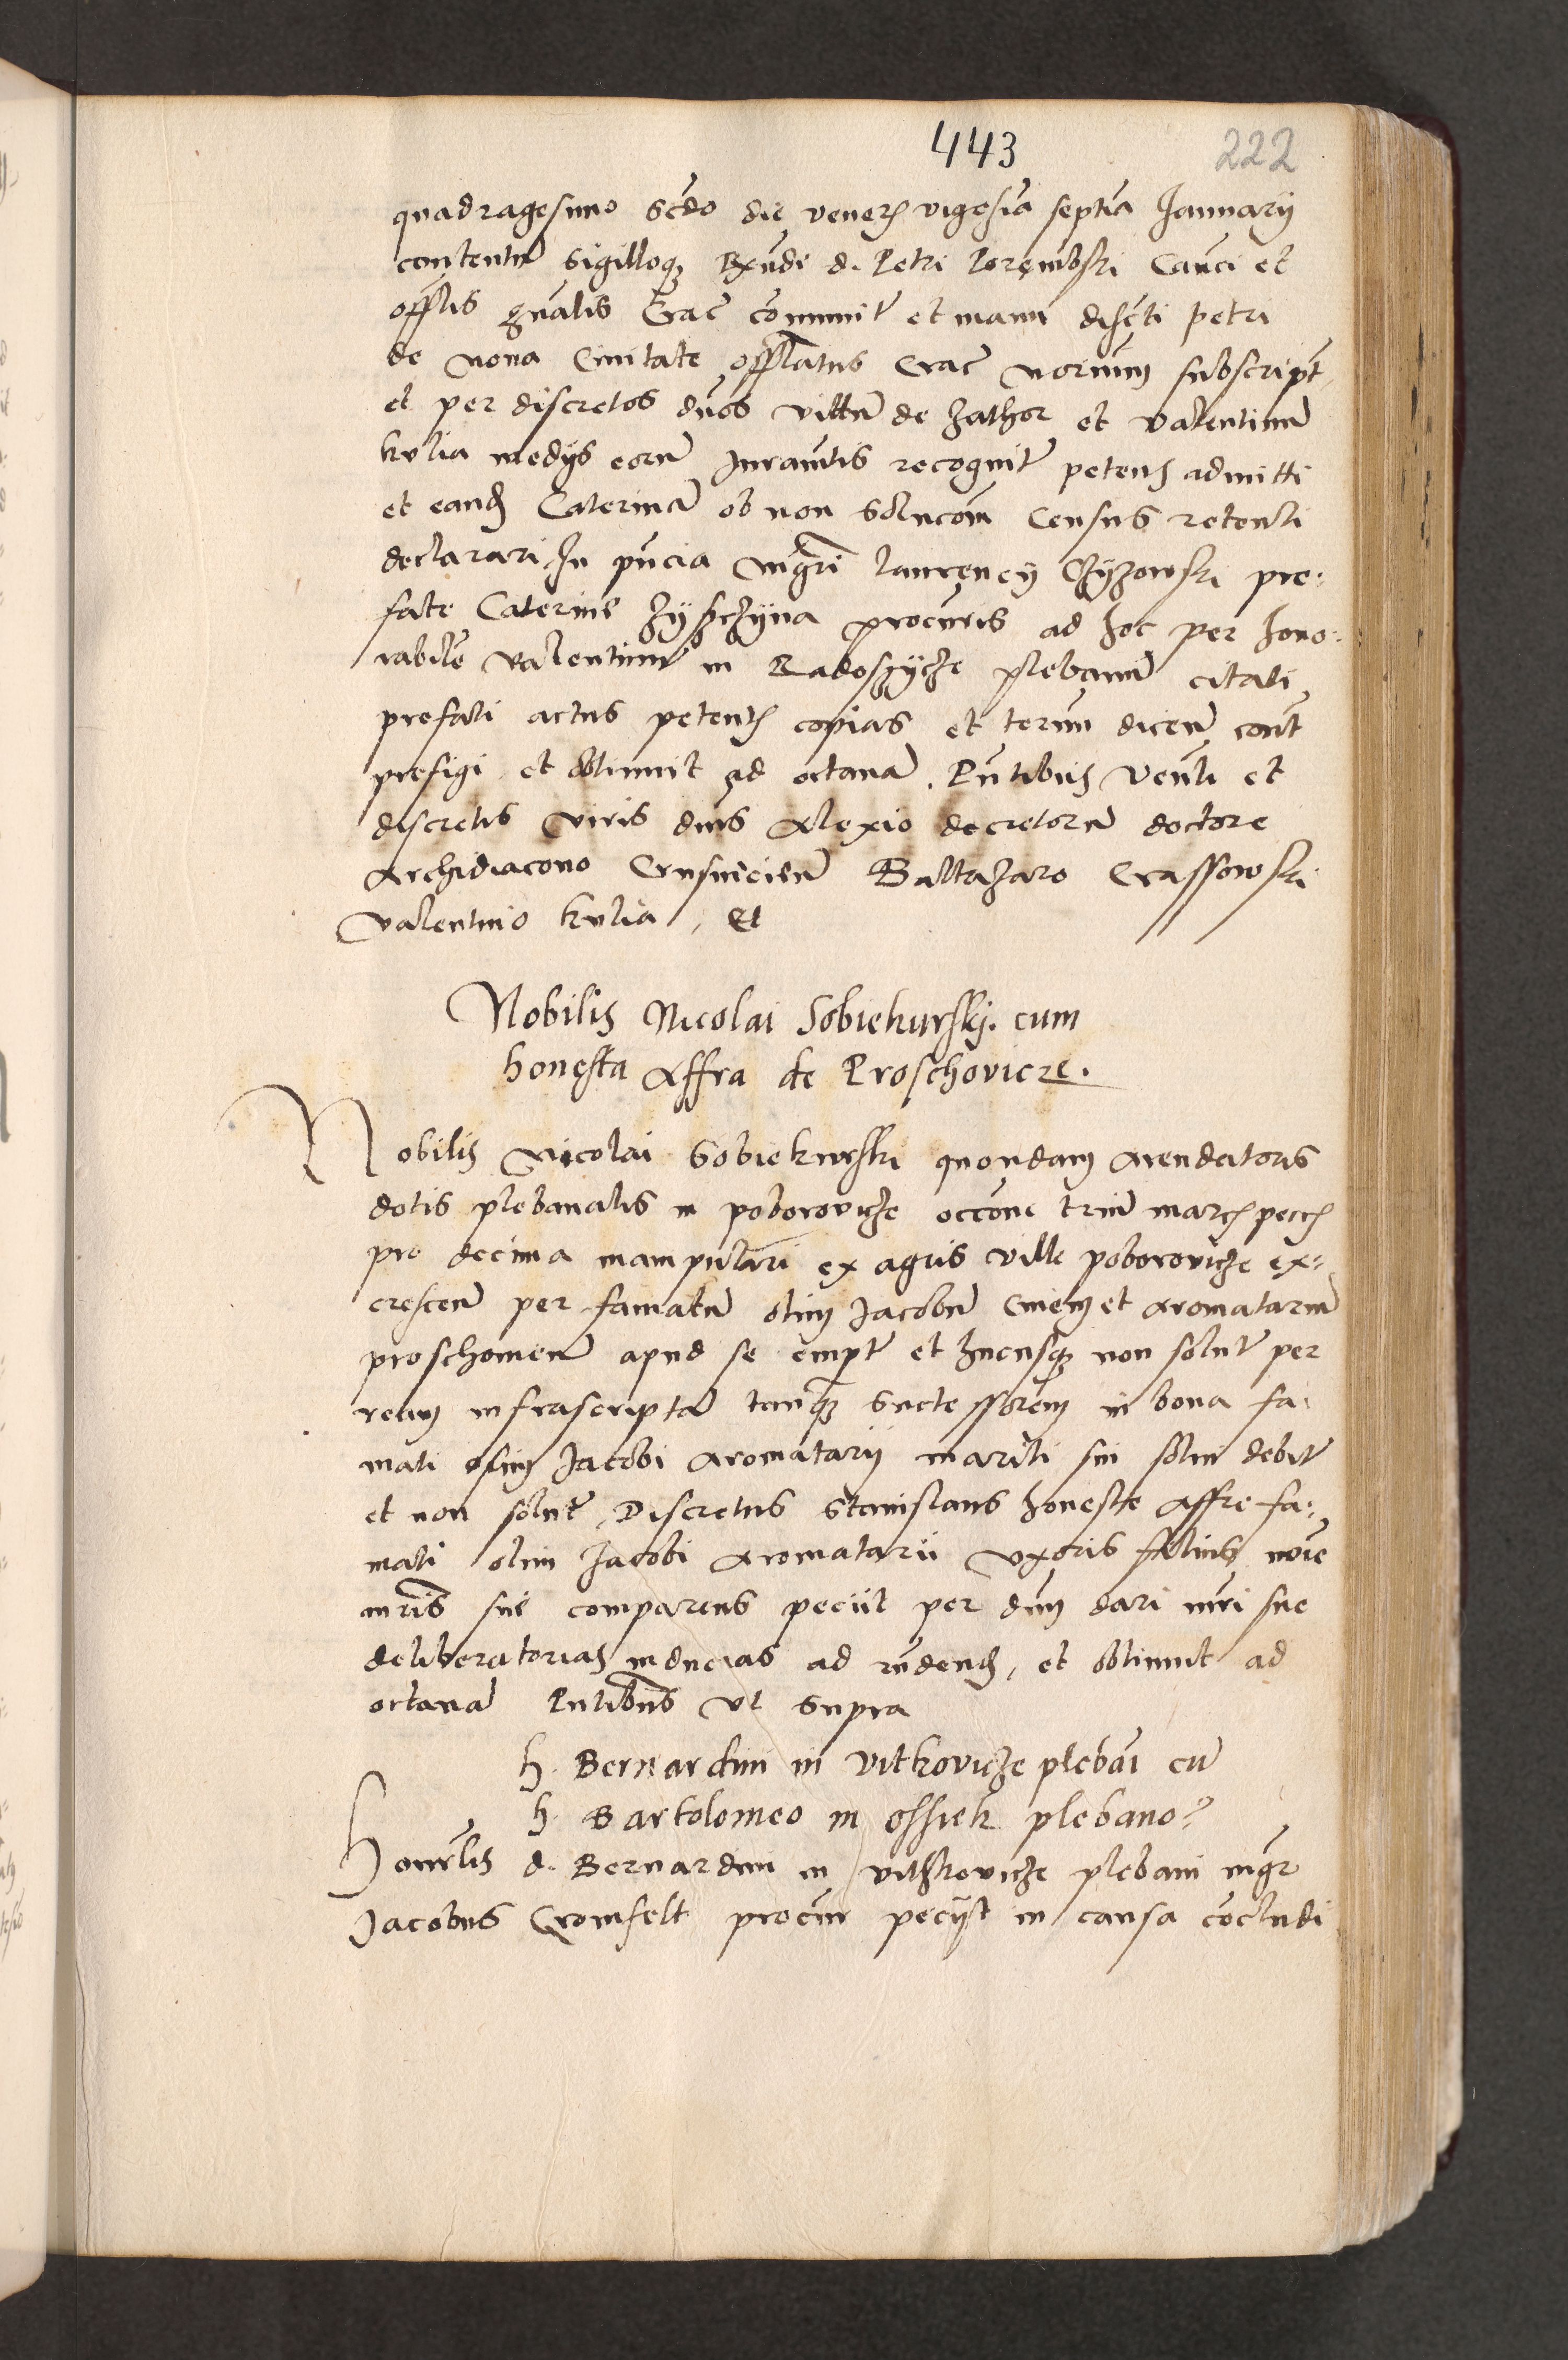 443 222
quadragesimo scdo die veners vigesia septia Januarij
contentum sigilloq Rxndi d. Petri Porembski Canci et
offlis gnalis Crac comunit et manu discti petri
de nona Civitate offlatus Crac norium subscript
et per discretos duos vittum de Zathor et Valentinum
kulia medys eorum Jurautis recognit petens admitti
et eand Caterinam ob non solucom Census retenti
declarari In pncia mgri laurency Czyzowski pre:
fate Caterine Zyszczyna procuris ad hoc per hono:
rabile Valentinum in Radoszycze plebanum citati
prefati actus petents copias et terum dicen cont
prefigi et obtinuit ad octanam. Pntibus Venli et
discretis viris dnis Alexio decretorum doctore
Archidiacono Crusuicien Baltazaro Crassowski
Valentino kulia, Et
Nobilis Nicolai Sobiekurskj. cum
honesta Affra de Proschovicze.
Nobilis Nicolai Sobiekurski quondam arendatoris
dotis plebanalis in poborovicze occone trium marcs peccs
pro decima manipulari ex agris ville poborovicze ex=
crescen per famatum olim Jacobum Civem et aromatarium
proschovien apud se empt et hucusq non solut per
ream infrascriptam tanq successorem in bona fa:
mati olim Jacobi aromatarij mariti sui solui debit
et non solut, Discretus Stanislaus honeste Affre fa:
mati olim Jacobi aromatarii vxoris filius noie
mris sue comparens peciit per dnm dari mri sue
deliberatorias inducias ad rndend, et obtinuit ad
octanam Pntibus vt supra
h. Bernardini in vitkovicze plebai cum
h. Bartolomeo in ossiek plebano
Honrlis d. Bernardini in vithkovicze plebani mgr
Jacobus Cromfelt procur pecijt in causa cocludi